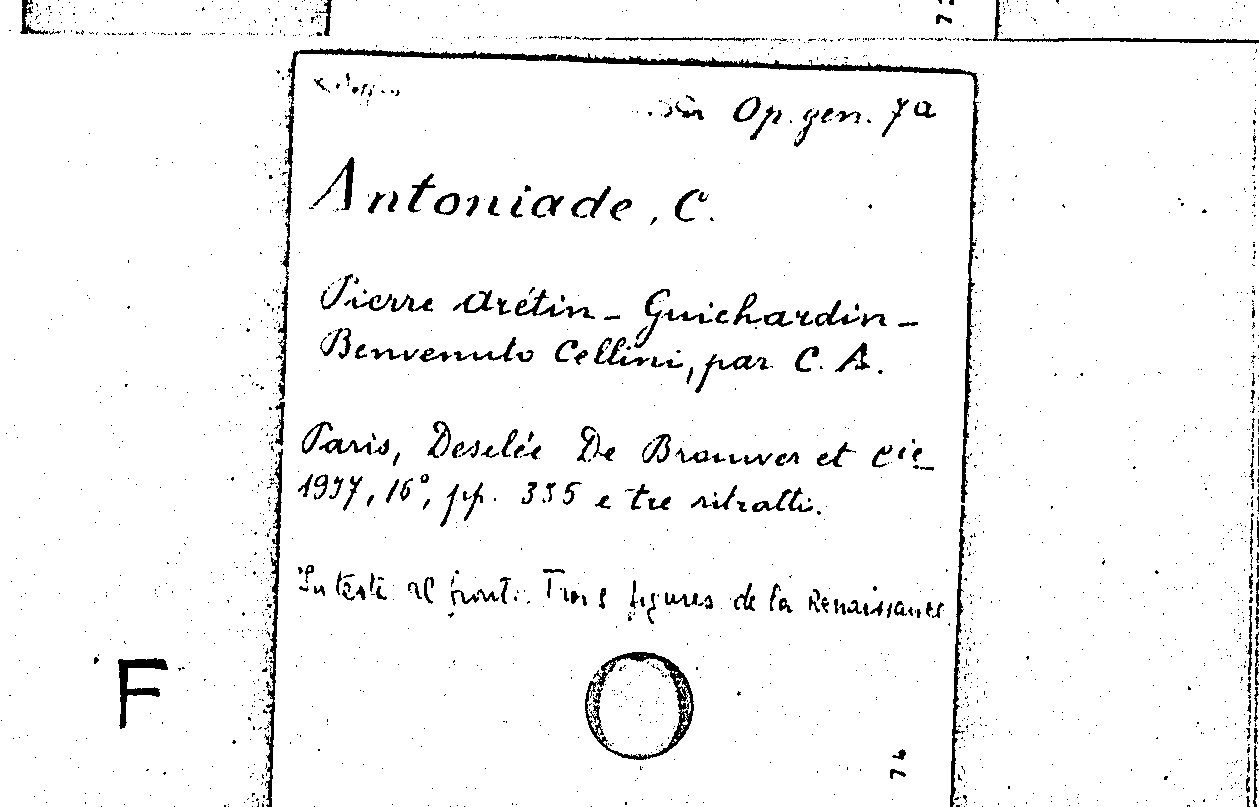 Op. gen. 7a
Antoniade, C.
Pierre Arétin - Guichardin -
Benvenuto Cellini, par C. A.
Paris, Desclée De Brouwer et Cie
1937, 16°, pp. 335 e tre ritratti.
In testa al front.: Trois figures de la Renaissance
F
74